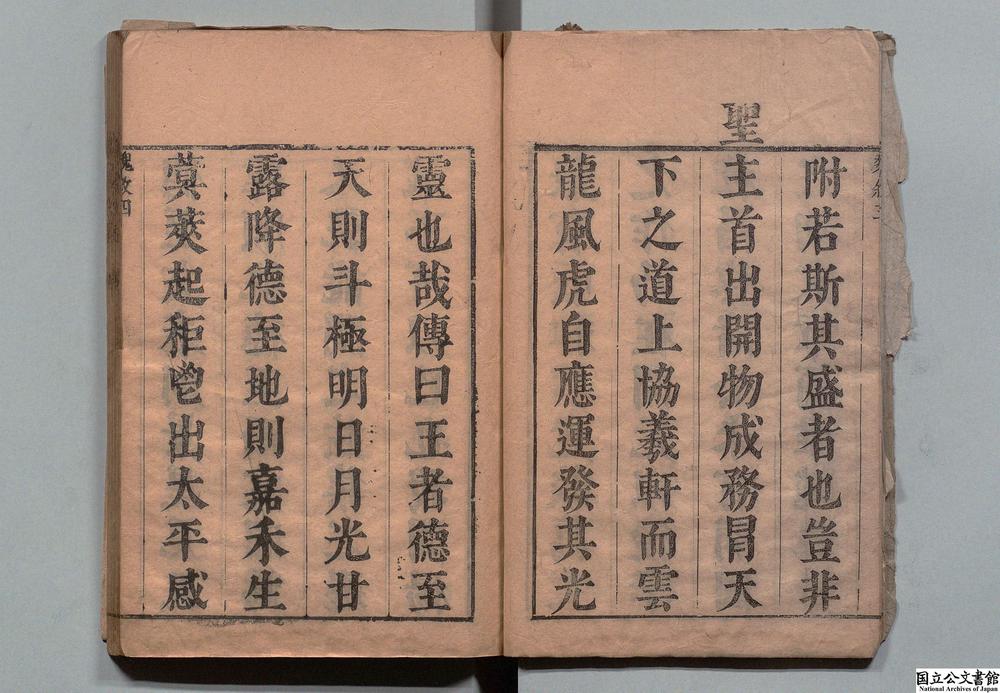 附若斯其盛者也豈非
聖主首出開物成務冒天
下之道上協羲軒而雲
龍風虎自應運發其光
靈也哉傳曰王者德至
天則斗極明日月光甘
露降德至地則嘉禾生
蓂莢起秬鬯出太平感
国立公文書館
National Archives of Japan